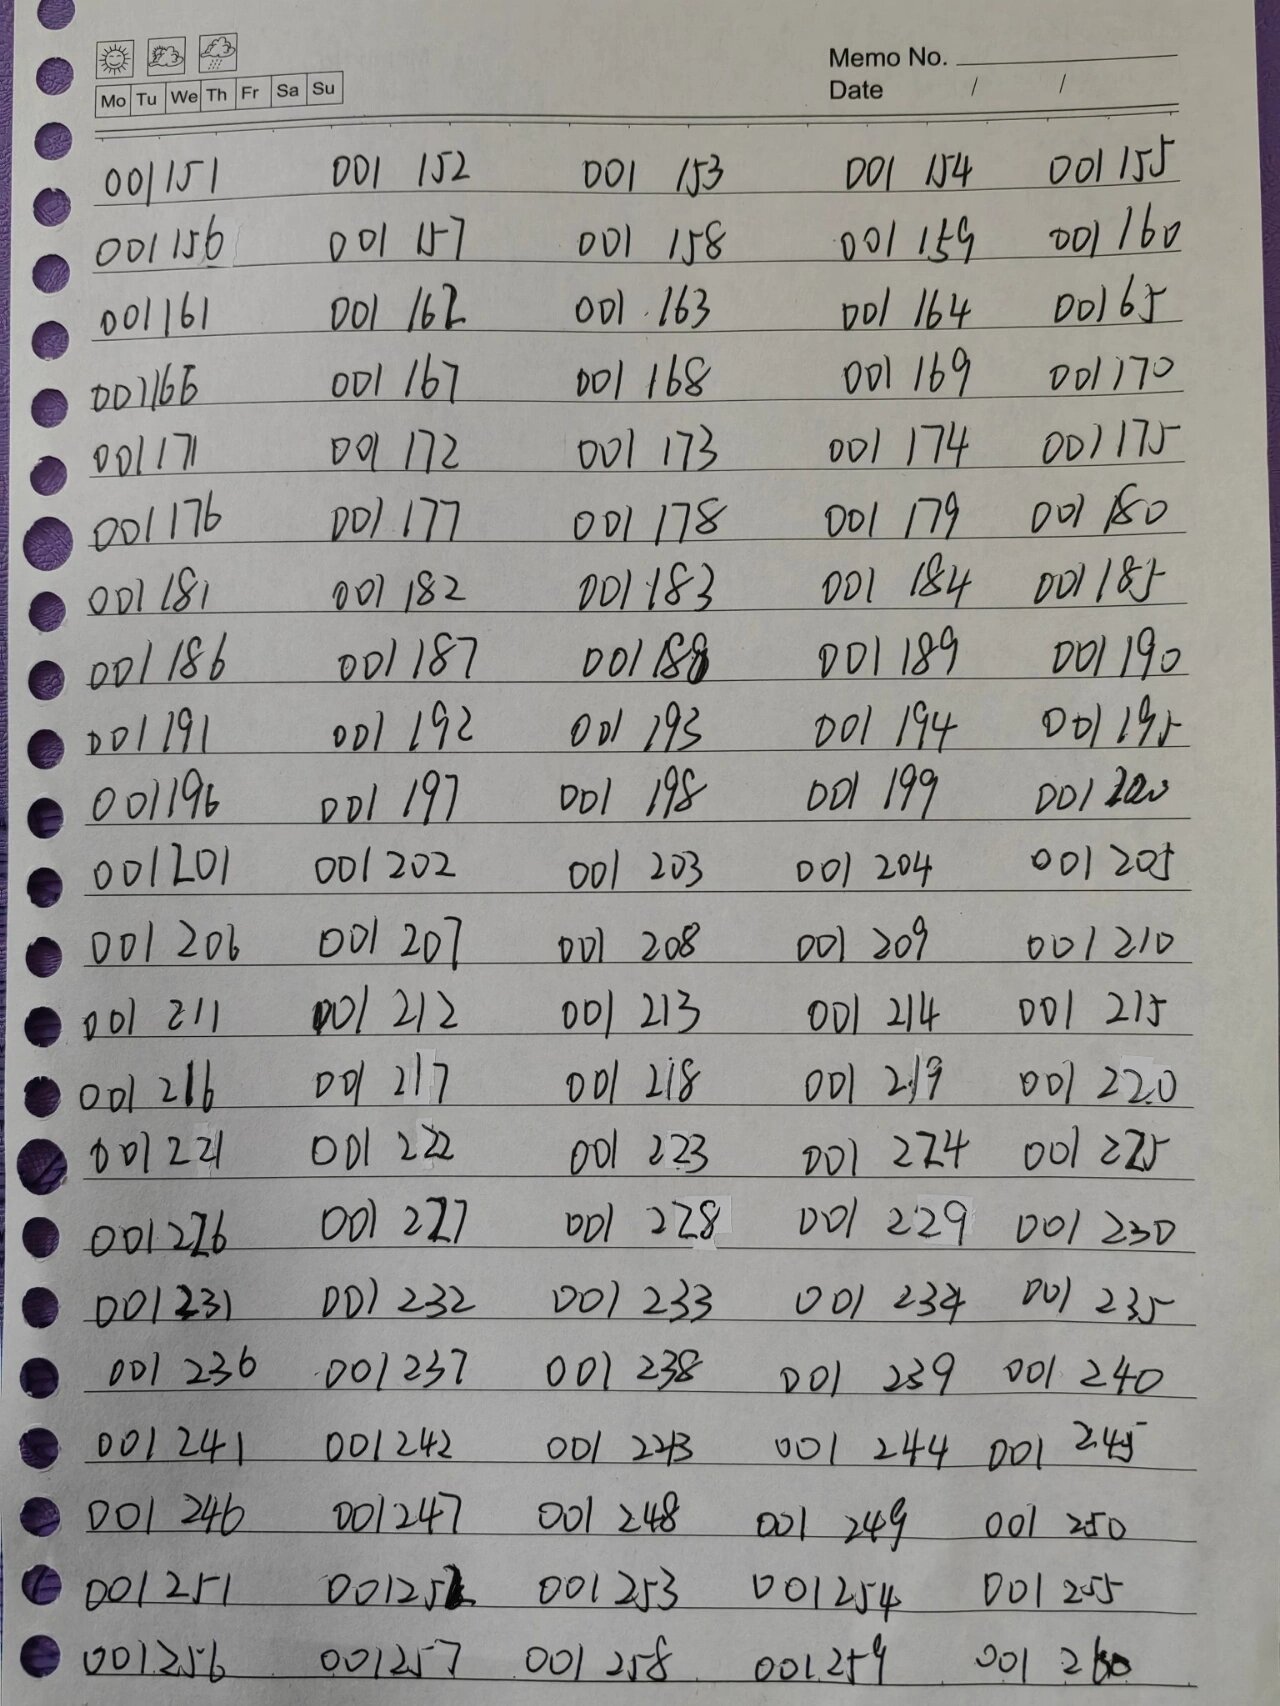 Memo No.
Mo Tu We Th Fr Sa Su
Date / /
001151 001 152 001 153 001 154 001 155
001 156 001 157 001 158 001 159 001 160
001161 001 162 001 163 001 164 00165
001166 001 167 001 168 001 169 001170
001171 001 172 001 173 001 174 001175
001176 001 177 001 178 001 179 001 180
001 181 001 182 001 183 001 184 001185
001 186 001 187 001 188 001 189 001 190
001 191 001 192 001 193 001 194 001 195
001196 001 197 001 198 001 199 001 200
001201 001 202 001 203 001 204 001 205
001 206 001 207 001 208 001 209 001 210
001 211 001 212 001 213 001 214 001 215
001 216 001 217 001 218 001 219 001 220
001 221 001 222 001 223 001 224 001 225
001 226 001 227 001 228 001 229 001 230
001 231 001 232 001 233 001 234 001 235
001 236 001 237 001 238 001 239 001 240
001 241 001 242 001 243 001 244 001 245
001 246 001247 001 248 001 249 001 250
001 251 001252 001 253 001254 001 255
001256 001257 001 258 001259 001 260